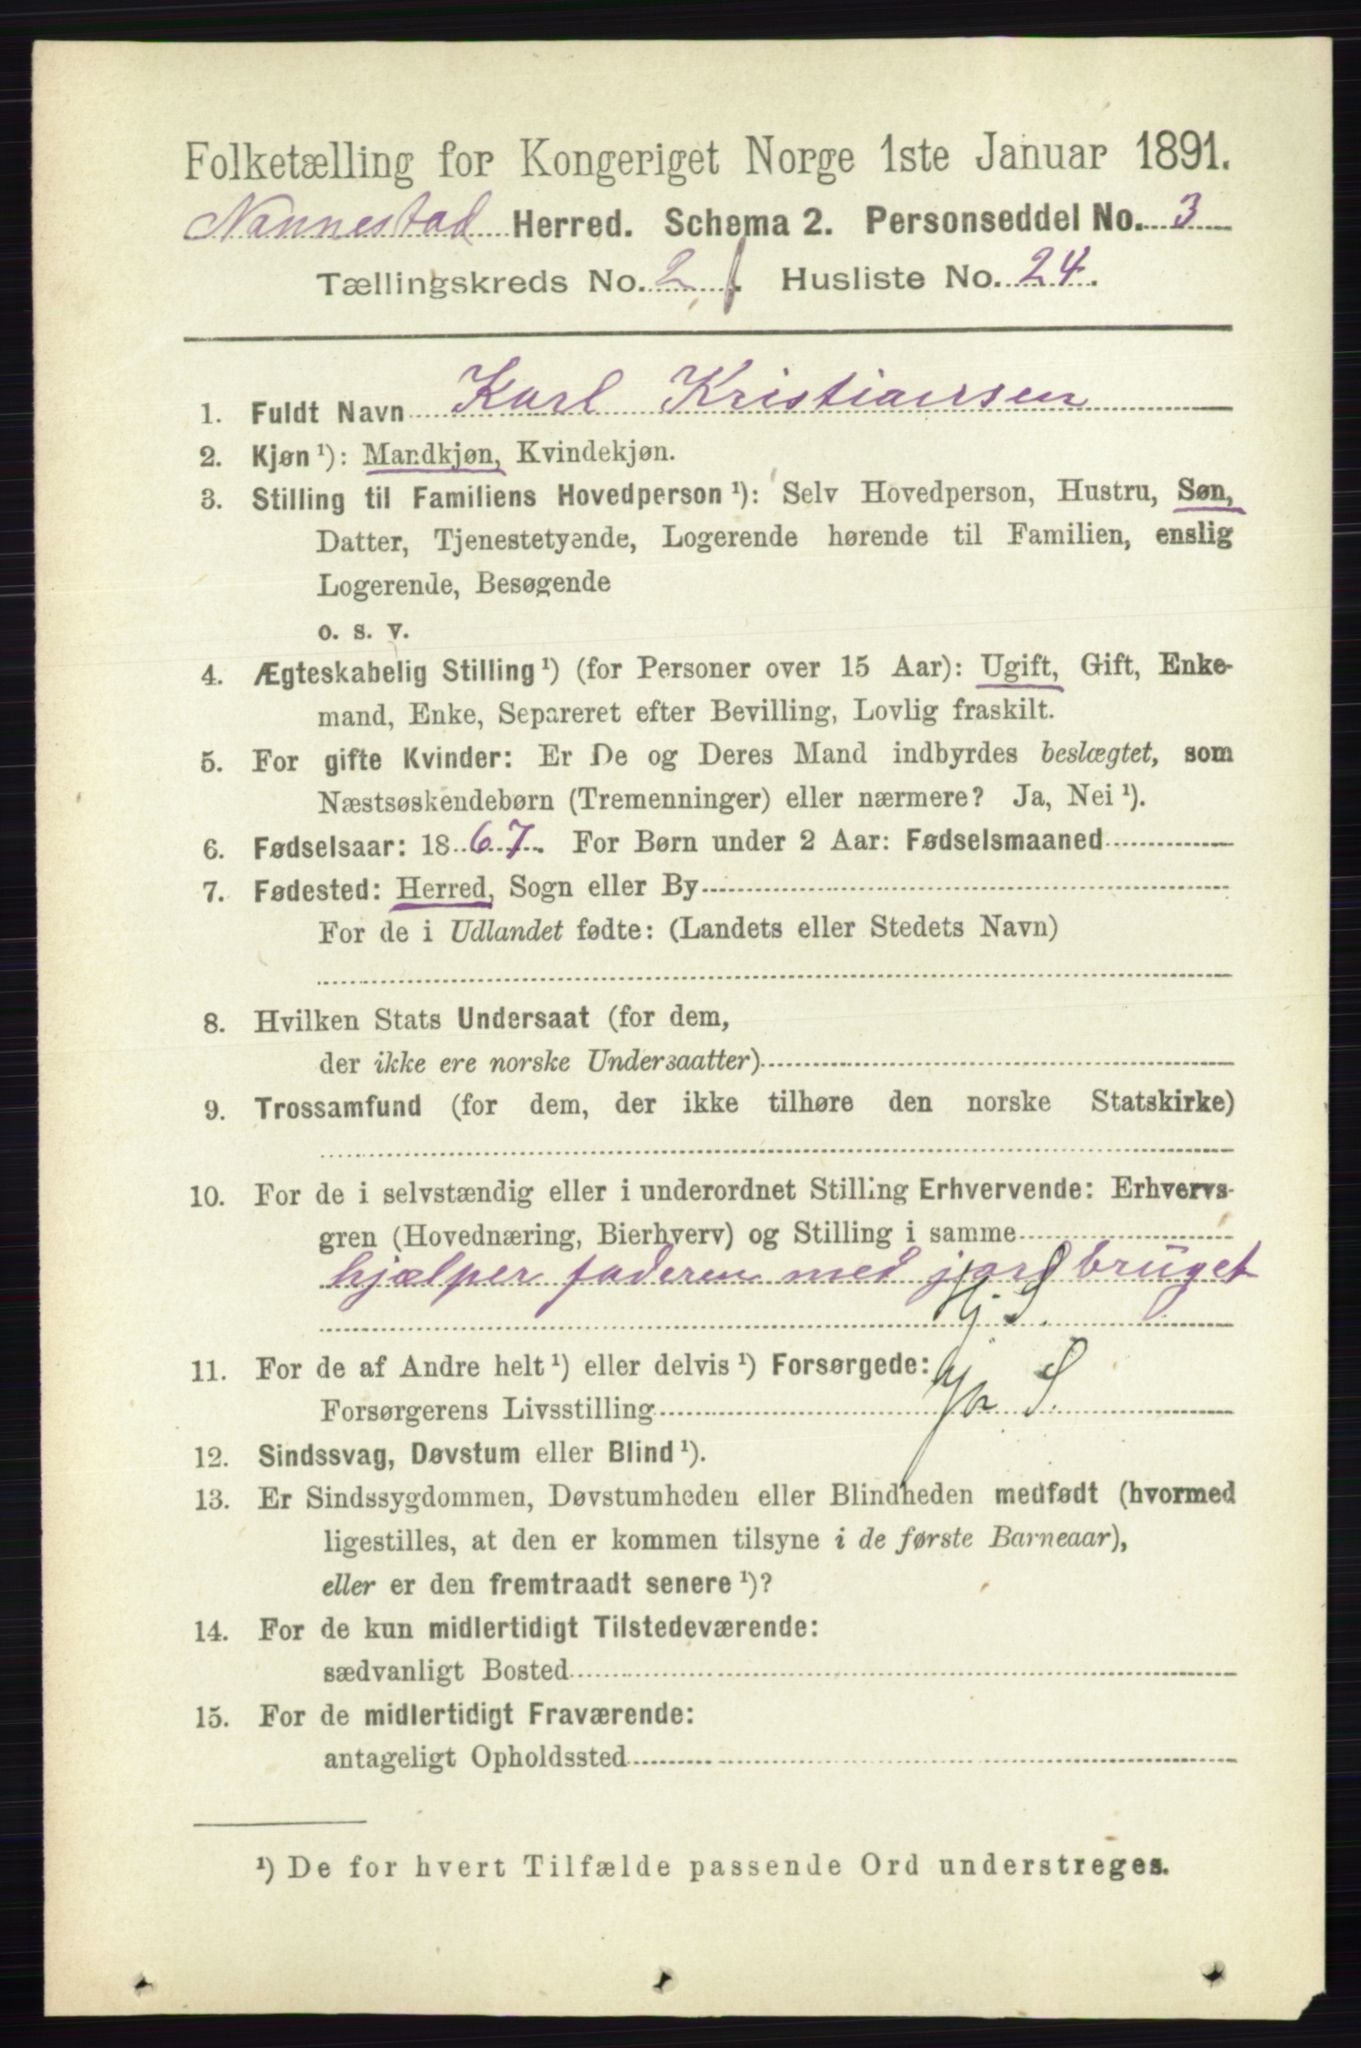 Folketælling for Kongeriget Norge 1ste Januar 1891.
Nannestad Herred. Schema 2. Personseddel No. 3
Tællingskreds No. 2. Husliste No. 24.
1. Fuldt Navn Karl Kristiansen
2. Kjøn ¹): Mandkjøn, Kvindekjøn.
3. Stilling til Familiens Hovedperson ¹): Selv Hovedperson, Hustru, Søn,
Datter, Tjenestetyende, Logerende hørende til Familien, enslig
Logerende, Besøgende
o. s. v.
4. Ægteskabelig Stilling ¹) (for Personer over 15 Aar): Ugift, Gift, Enke-
mand, Enke, Separeret efter Bevilling, Lovlig fraskilt.
5. For gifte Kvinder: Er De og Deres Mand indbyrdes beslægtet, som
Næstsøskendebørn (Tremenninger) eller nærmere? Ja, Nei ¹).
6. Fødselsaar: 1867. For Børn under 2 Aar: Fødselsmaaned
7. Fødested: Herred, Sogn eller By
For de i Udlandet fødte: (Landets eller Stedets Navn)
8. Hvilken Stats Undersaat (for dem,
der ikke ere norske Undersaatter)
9. Trossamfund (for dem, der ikke tilhøre den norske Statskirke)
10. For de i selvstændig eller i underordnet Stilling Erhvervende: Erhvervs-
gren (Hovednæring, Bierhverv) og Stilling i samme
hjælper faderen med jordbruget
S.
11. For de af Andre helt ¹) eller delvis ¹) Forsørgede:
Forsørgerens Livsstilling S.
12. Sindssvag, Døvstum eller Blind ¹).
13. Er Sindssygdommen, Døvstumheden eller Blindheden medfødt (hvormed
ligestilles, at den er kommen tilsyne i de første Barneaar),
eller er den fremtraadt senere ¹)?
14. For de kun midlertidigt Tilstedeværende:
sædvanligt Bosted
15. For de midlertidigt Fraværende:
antageligt Opholdssted
¹) De for hvert Tilfælde passende Ord understreges.